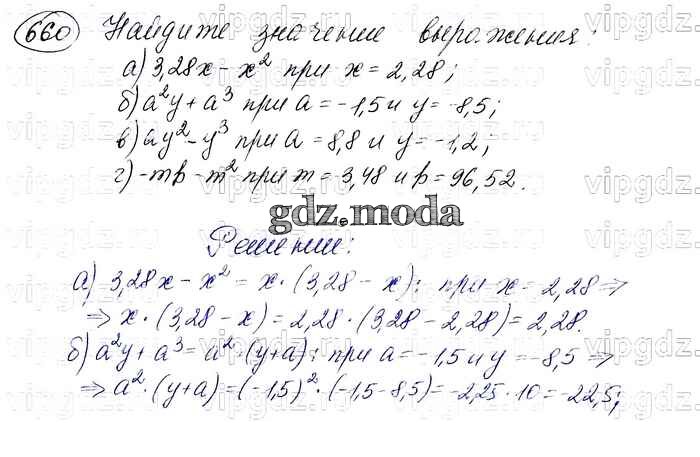 660 Найдите значение выражения:
а) 3,28x - x² при x = 2,28;
б) a²y + a³ при a = -1,5 и y = -8,5;
в) ay² - y³ при a = 8,8 и y = -1,2;
г) -mp - m² при m = -3,48 и p = 96,52.
gdz.moda
Решение:
а) 3,28x - x² = x · (3,28 - x); при x = 2,28 ⇒
⇒ x · (3,28 - x) = 2,28 · (3,28 - 2,28) = 2,28.
б) a²y + a³ = a² · (y + a); при a = -1,5 и y = -8,5 ⇒
⇒ a² · (y + a) = (-1,5)² · (-1,5 - 8,5) = -2,25 · 10 = -22,5;